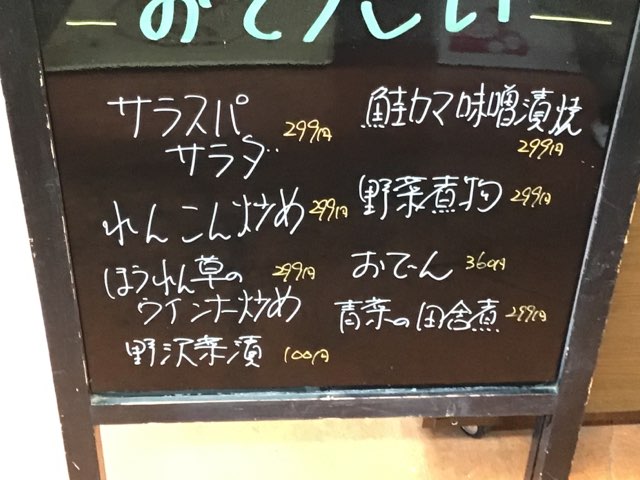 サラスパ
サラダ 299円
れんこん炒め 299円
ほうれん草の 299円
ウインナー炒め
野沢菜漬 100円
鮭カマ味噌漬焼
299円
野菜煮物 299円
おでーん 360円
青菜の田舎煮 299円